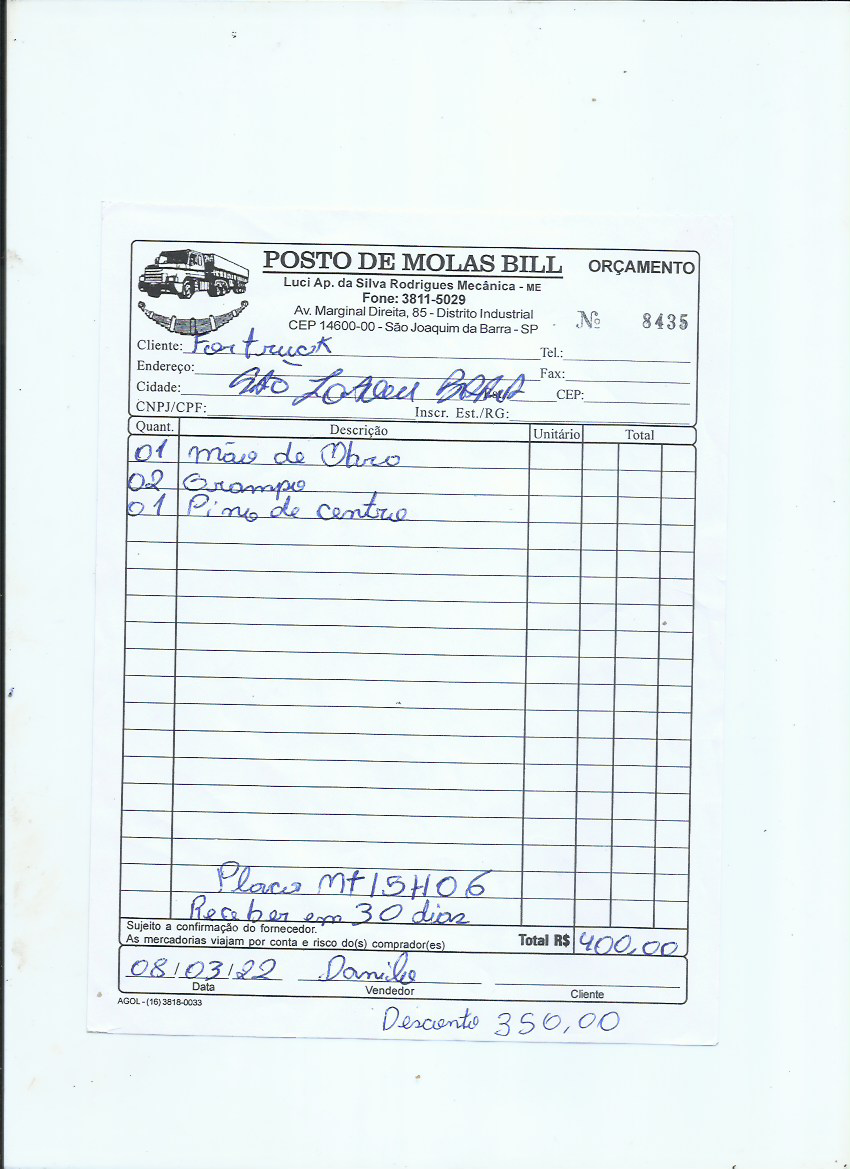 POSTO DE MOLAS BILL
ORÇAMENTO
Luci Ap. da Silva Rodrigues Mecânica - ME
Fone: 3811-5029
Av. Marginal Direita, 85 - Distrito Industrial
CEP 14600-00 - São Joaquim da Barra - SP
Nº 8435
Cliente: Fortruck Tel.:
Endereço: Fax:
Cidade: São CEP:
CNPJ/CPF: Inscr. Est./RG:
Quant. Descrição Unitário Total
01 mão de Obra
02 Grampo
01 Pino de centro
Placa MtI5H06
Receber em 30 dias
Sujeito a confirmação do fornecedor.
As mercadorias viajam por conta e risco do(s) comprador(es)
Total R$ 400,00
08/03/22 Danilo
Data Vendedor Cliente
AGOL - (16) 3818-0033
Desconto 350,00